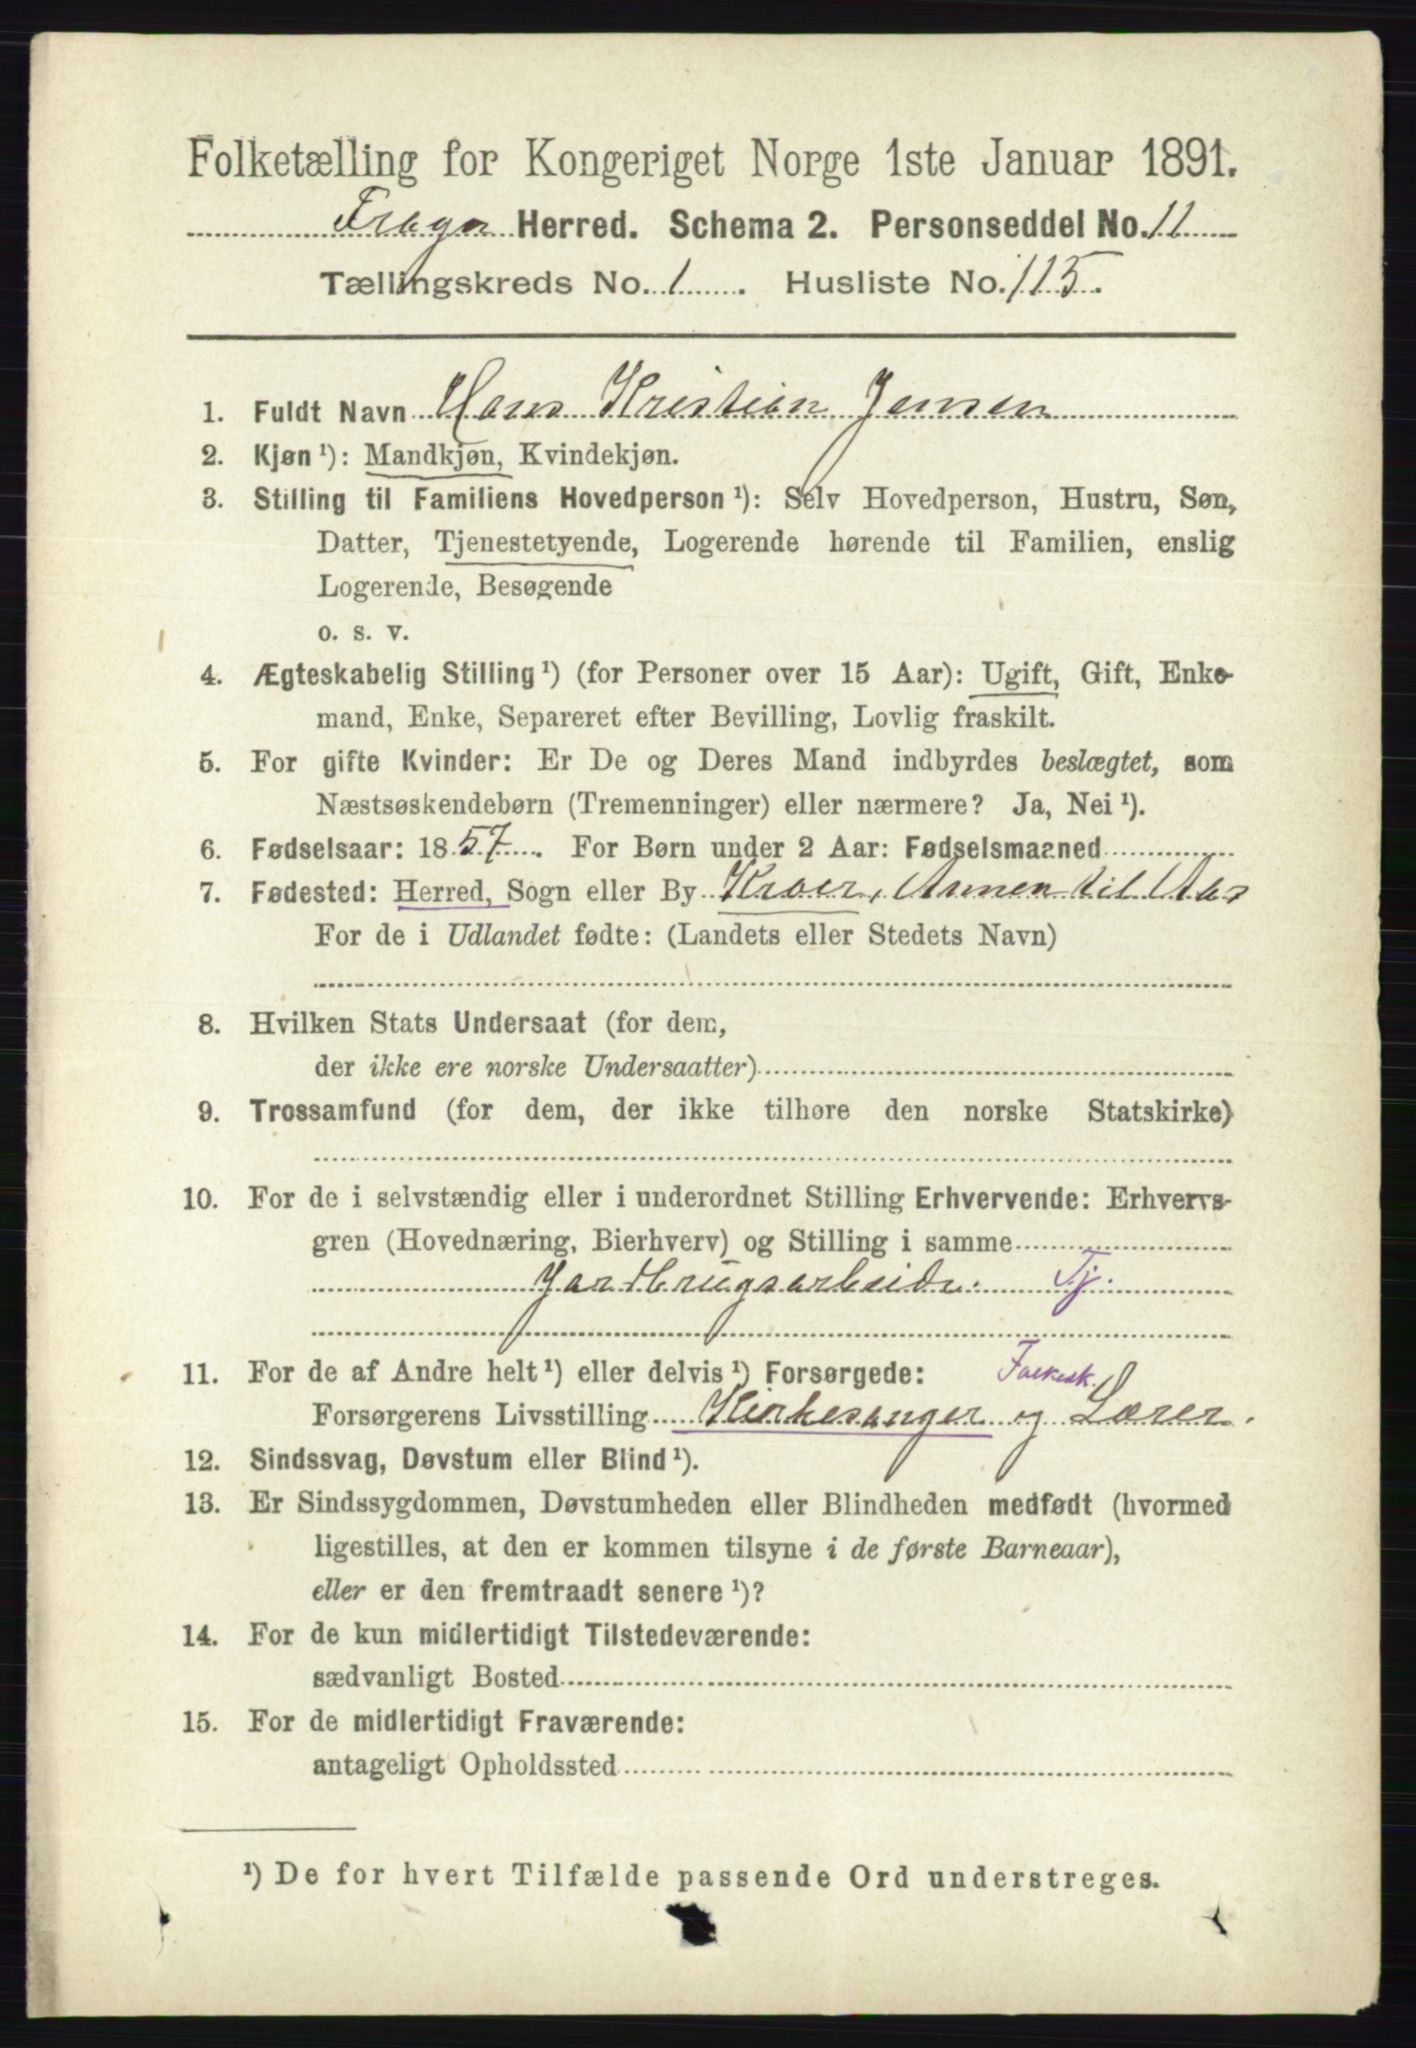 Folketælling for Kongeriget Norge 1ste Januar 1891.
Frogn Herred. Schema 2. Personseddel No. 11
Tællingskreds No. 1. Husliste No. 115.
1. Fuldt Navn Hans Kristian Jensen
2. Kjøn ¹): Mandkjøn, Kvindekjøn.
3. Stilling til Familiens Hovedperson ¹): Selv Hovedperson, Hustru, Søn,
Datter, Tjenestetyende, Logerende hørende til Familien, enslig
Logerende, Besøgende
o. s. v.
4. Ægteskabelig Stilling ¹) (for Personer over 15 Aar): Ugift, Gift, Enke-
mand, Enke, Separeret efter Bevilling, Lovlig fraskilt.
5. For gifte Kvinder: Er De og Deres Mand indbyrdes beslægtet, som
Næstsøskendebørn (Tremenninger) eller nærmere? Ja, Nei ¹).
6. Fødselsaar: 1857. For Børn under 2 Aar: Fødselsmaaned
7. Fødested: Herred, Sogn eller By Kroer, Annex til Aas
For de i Udlandet fødte: (Landets eller Stedets Navn)
8. Hvilken Stats Undersaat (for dem,
der ikke ere norske Undersaatter)
9. Trossamfund (for dem, der ikke tilhøre den norske Statskirke)
10. For de i selvstændig eller i underordnet Stilling Erhvervende: Erhvervs-
gren (Hovednæring, Bierhverv) og Stilling i samme
Jordbrugsarbeide. Tj.
11. For de af Andre helt ¹) eller delvis ¹) Forsørgede: Folkesk.
Forsørgerens Livsstilling Kirkesanger og Lærer.
12. Sindssvag, Døvstum eller Blind ¹).
13. Er Sindssygdommen, Døvstumheden eller Blindheden medfødt (hvormed
ligestilles, at den er kommen tilsyne i de første Barneaar),
eller er den fremtraadt senere ¹)?
14. For de kun midlertidigt Tilstedeværende:
sædvanligt Bosted
15. For de midlertidigt Fraværende:
antageligt Opholdssted
¹) De for hvert Tilfælde passende Ord understreges.